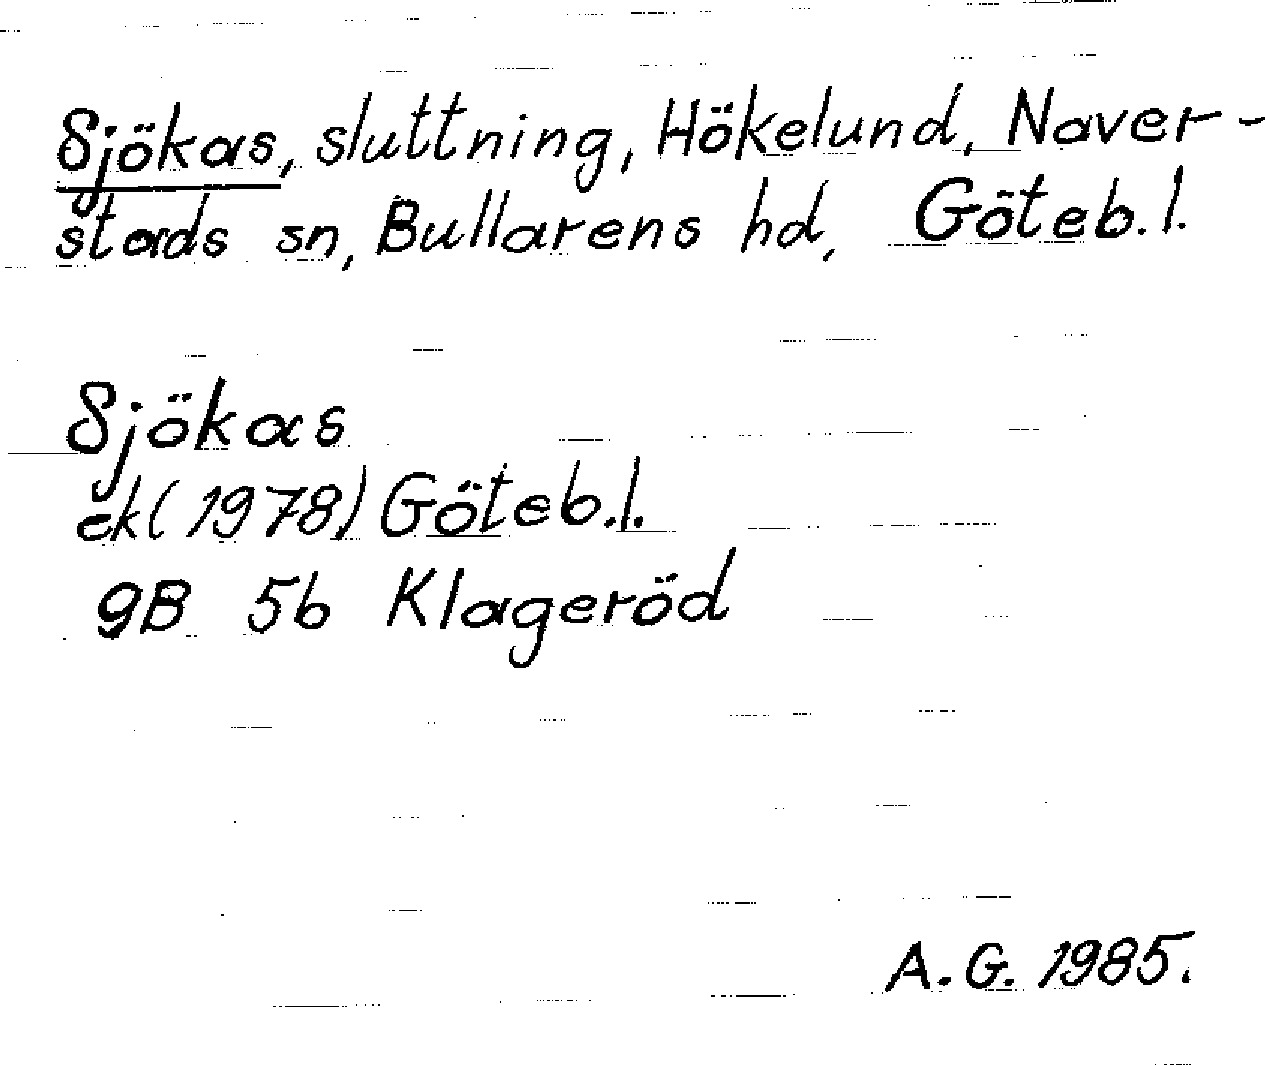 Sjökas, sluttning, Hökelund, Naver-
stads sn, Bullarens hd, Göteb. l.
Sjökas
ek (1978) Göteb. l.
9B 5b Klageröd
A. G. 1985.